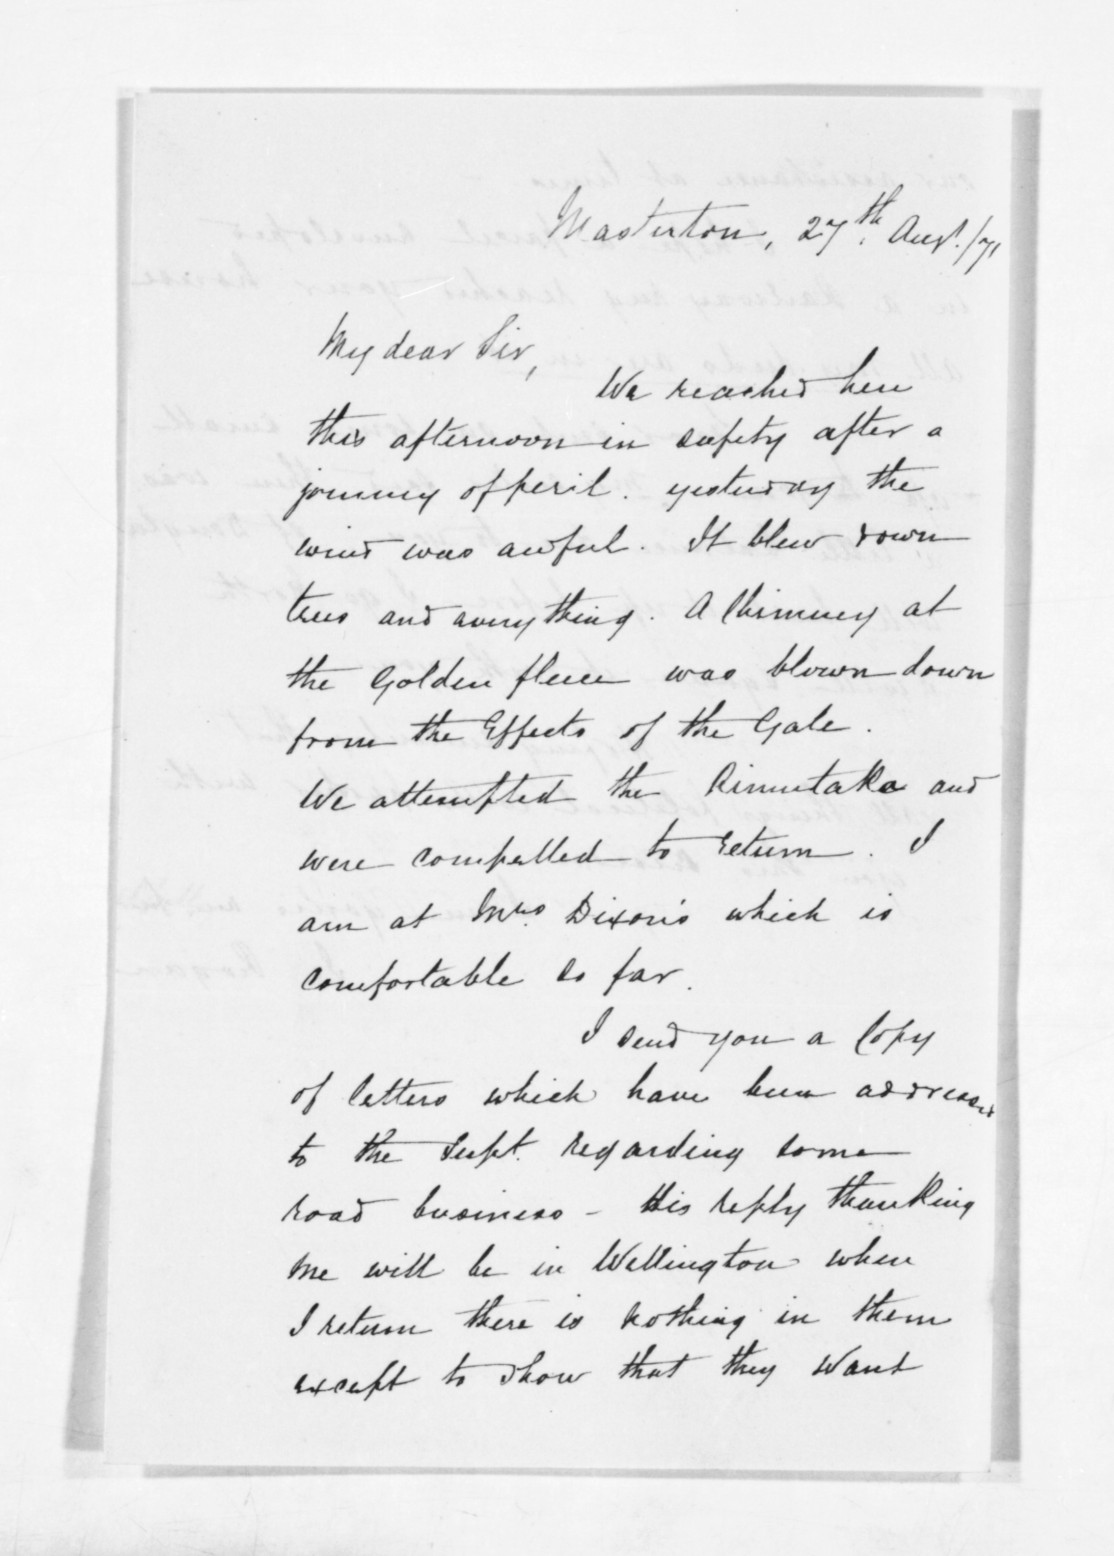 Masterton, 27th. Augt./71
My dear Sir,
We reached here
this afternoon in safety after a
journey of peril. yesterday the
wind was awful. It blew down
trees and everything. A Chimney at
the Golden fleece was blown down
from the Effects of the Gale.
We attempted the Rimutaka and
were compelled to return. I
am at Mrs. Dixon's which is
comfortable so far.
I send you a Copy
of letters which have been addressed
to the Supt. regarding some
road business - His reply thanking
me will be in Wellington when
I return there is nothing in them
except to show that they want